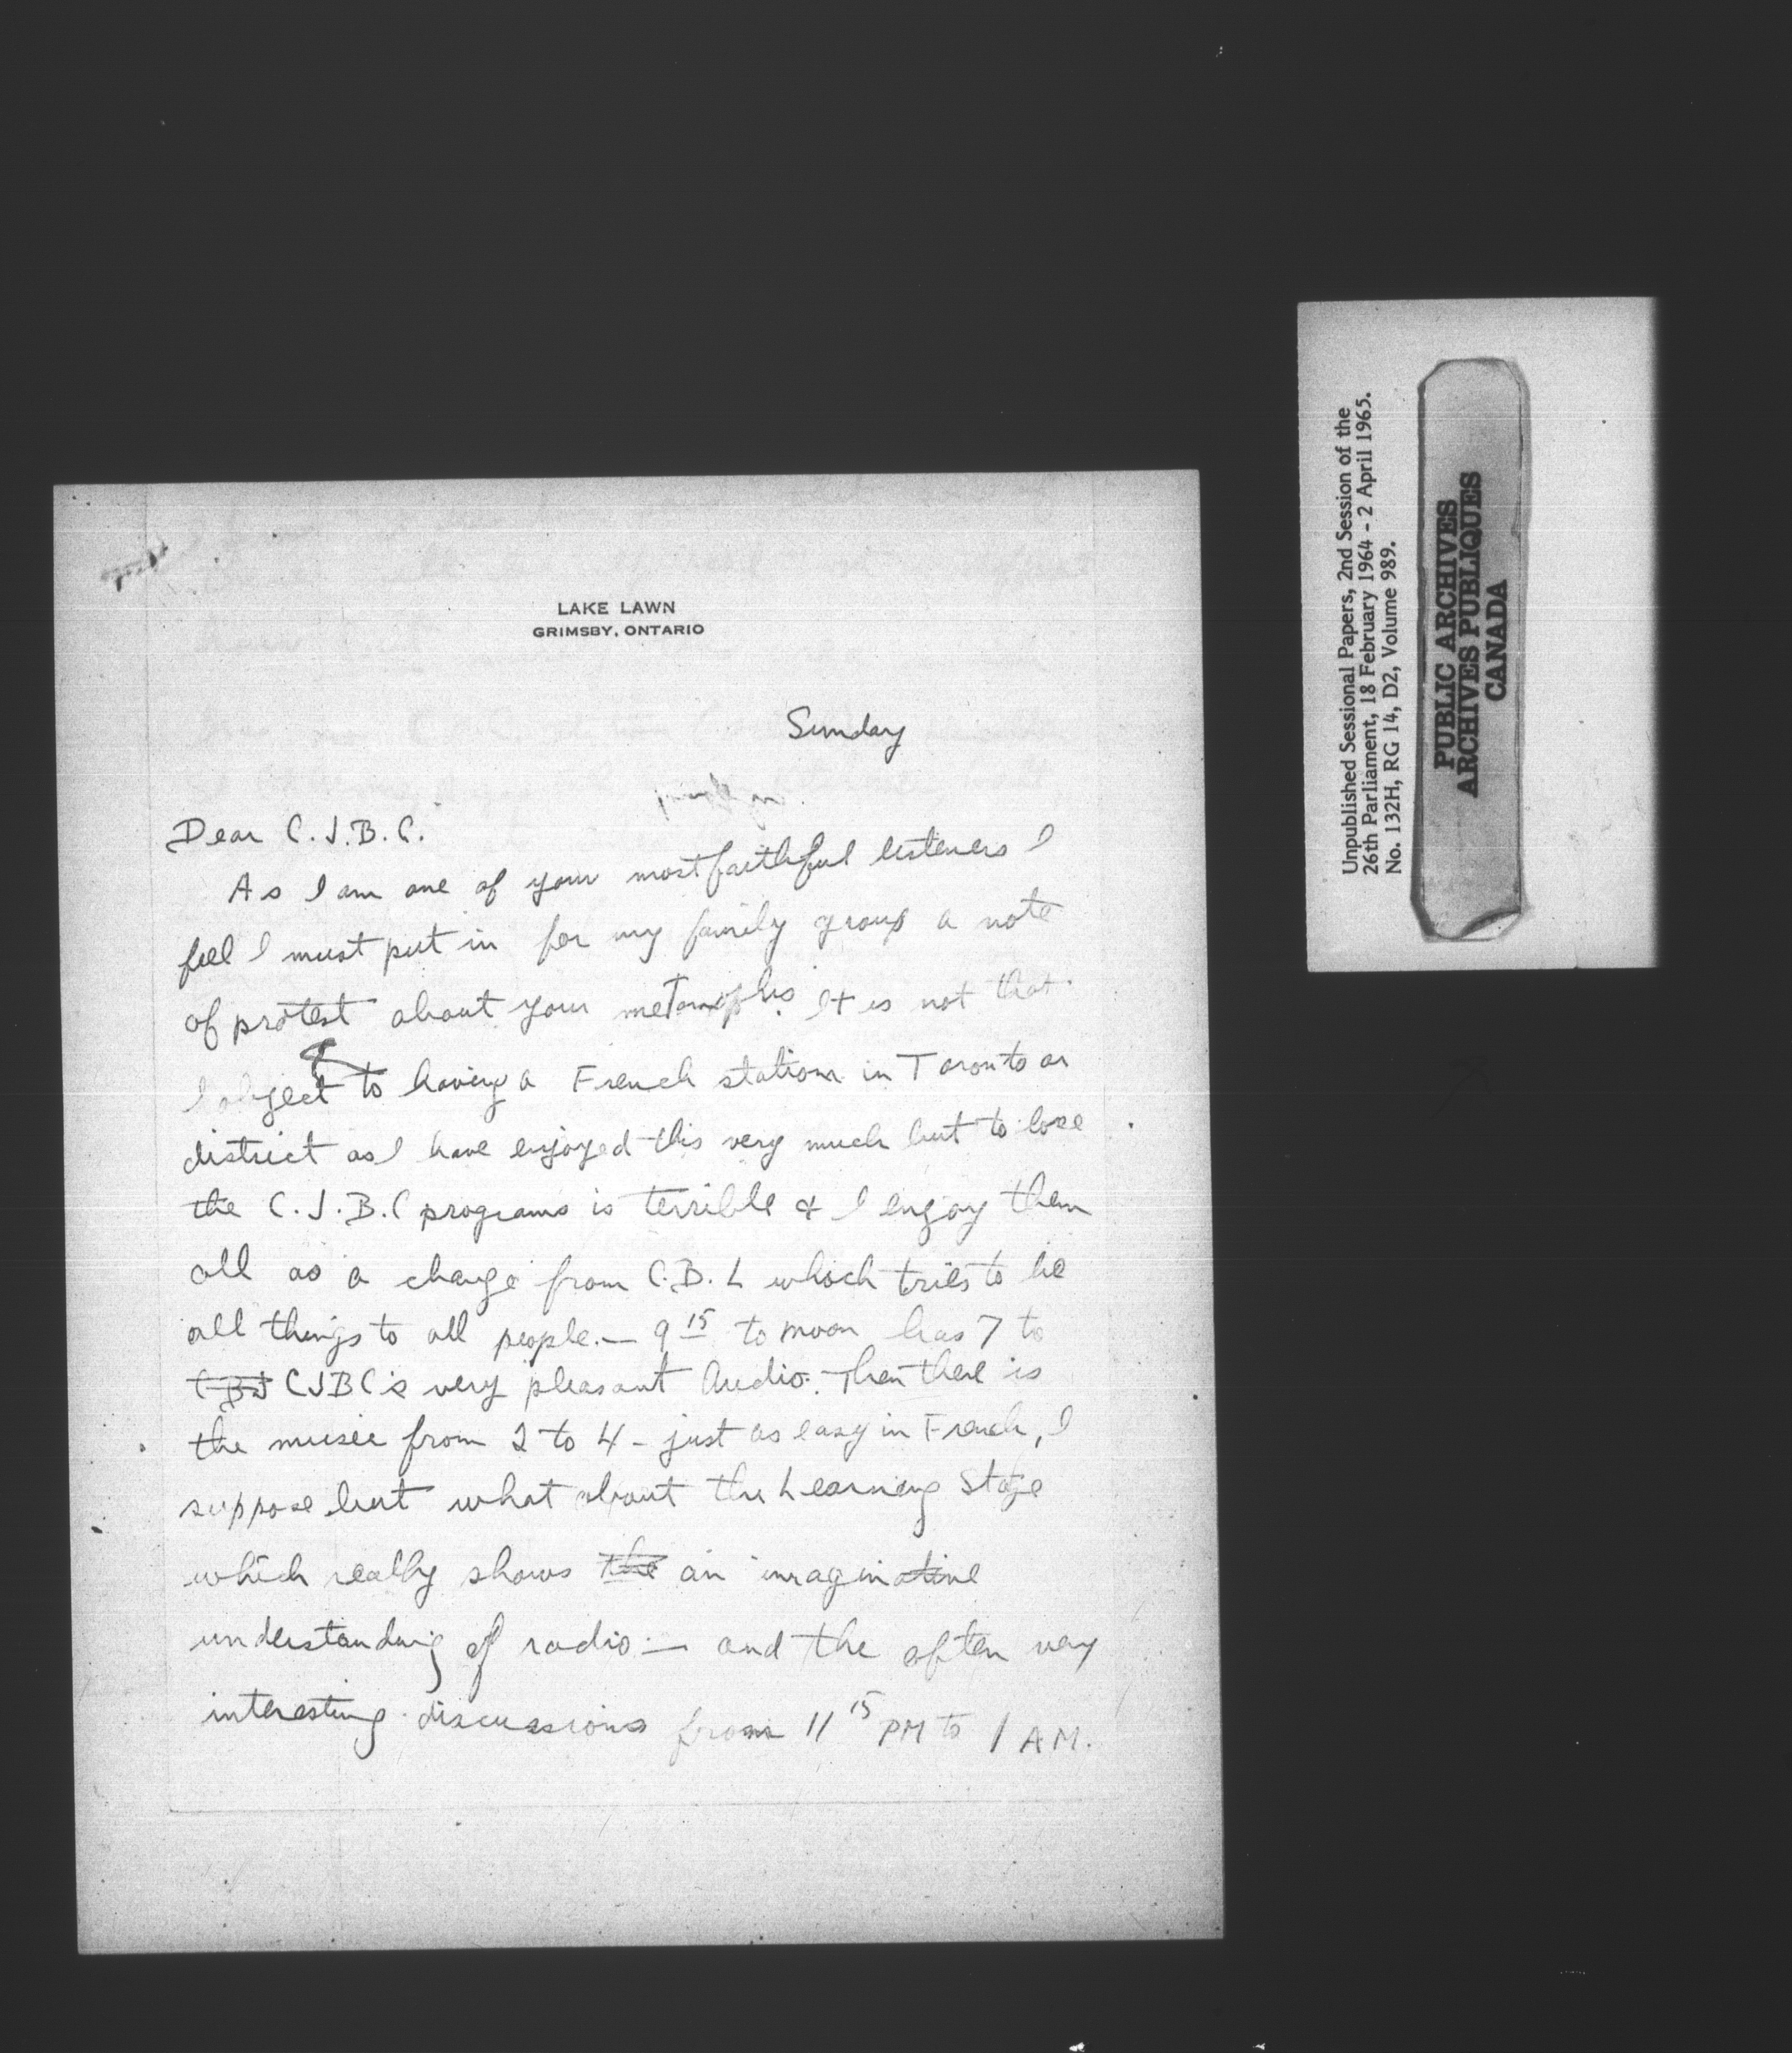 LAKE LAWN
GRIMSBY, ONTARIO
Sunday
Dear C.J.B.C.
As I am one of your most faithful listeners I
feel I must put in for my family group a note
of protest about your It is not that
I object to having a French station in Toronto or
district as I have enjoyed this very much but to lose
the C.J.B.C programs is terrible & I enjoy them
all as a change from C.B.L which tries to be
all things to all people. — 9 15 to noon has 7 to
CJBC's very pleasant Audio. Then there is
the music from 2 to 4 - just as easy in French, I
suppose but what about the Learning Stage
which really shows the an imaginative
understanding of radio — and the often very
interesting discussions from 11 15 PM to 1 AM.
Unpublished Sessional Papers, 2nd Session of the
26th Parliament, 18 February 1964 - 2 April 1965.
No. 132H, RG 14, D2, Volume 989.
PUBLIC ARCHIVES
ARCHIVES PUBLIQUES
CANADA